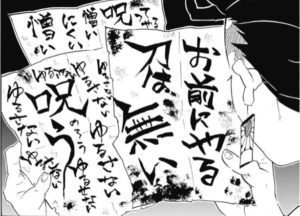 お前にやる
刀は無い
呪
憎い
にくい
憎い
ゆるさない
ゆるさない
のろうゆるさない
呪う
ゆるさない
ゆるさない